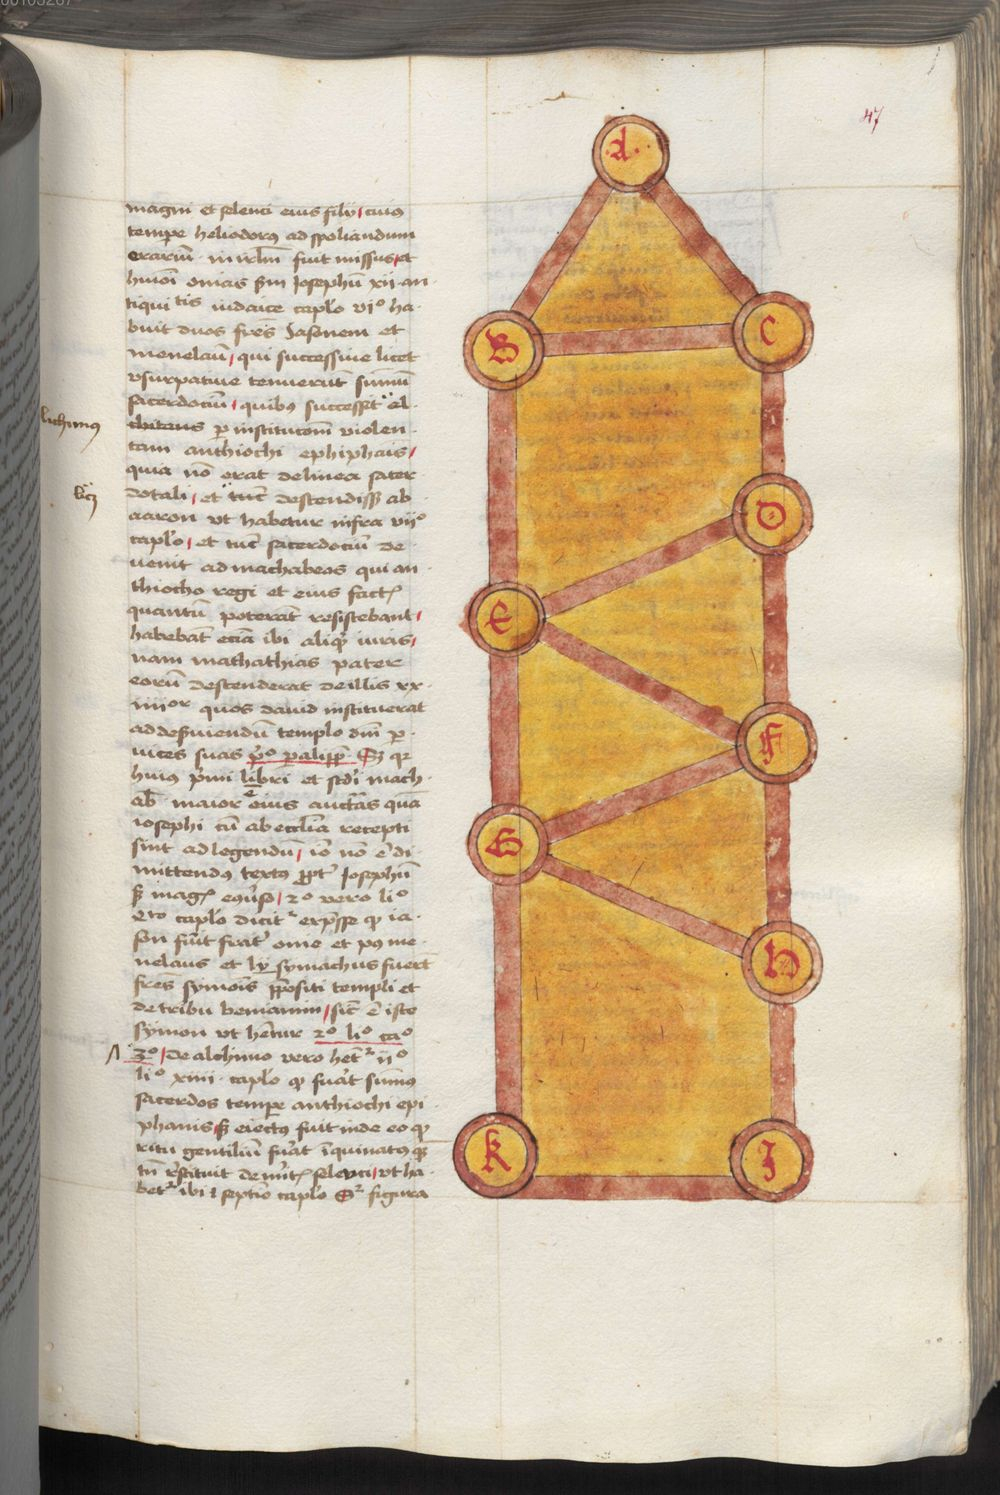 00103267
47
magni et seleuci eius filii cuius
tempore heliodorus ad spoliandum
erarium in irlm fuit missus et
huiusmodi onias sm Josephum xii an
tiqui tis iudaice caplo vi° ha
buit duos fres Jasonem et
menelaum, qui successiue licet
vsurpatiue tenuerunt summum
sacerdocium, quibus successit al
chimus
alchimus
per institucionem violen
tam anthiochi ephiphais,
quia non erat de linea sacer
dotali, et tunc descendisse ab
licz
aaron vt habetur infra vii°
caplo, et tunc sacerdocium de
uenit ad machabeos qui an
thiocho regi et eius fact
quantum poterant resistebant,
habebant eciam ibi aliquid iuris,
nam mathathias pater
eorum descenderat de illis xx
iiiior quos dauid instituerat
ad deseruiendum templo dni per
uices suas
huius primi libri et scdi mach
ab maior e eius auctas quam
iosephi cum ab ecclia recepti
sint ad legendum, io non e di
mittendus textus ppt Josephum
2° vero li°
caplo dicit expsse q ia
son fuit frater onie et q me
nelaus et ly symachus fuert
fres symois ppositi templi et
de tribu beniamin, sic e iste
symon vt hetur 2° li° ca°
3°, de alchimo vero het ii°
li° xiiii caplo q fuat summus
sacerdos tempe anthiochi epi
phanis, s eiectus fuit inde eo q
ritu gentilium fuat inquinatus
restituit demet seleuci, vt ha
bet ibi septio caplo figura
A
B
C
D
E
F
G
H
K
J